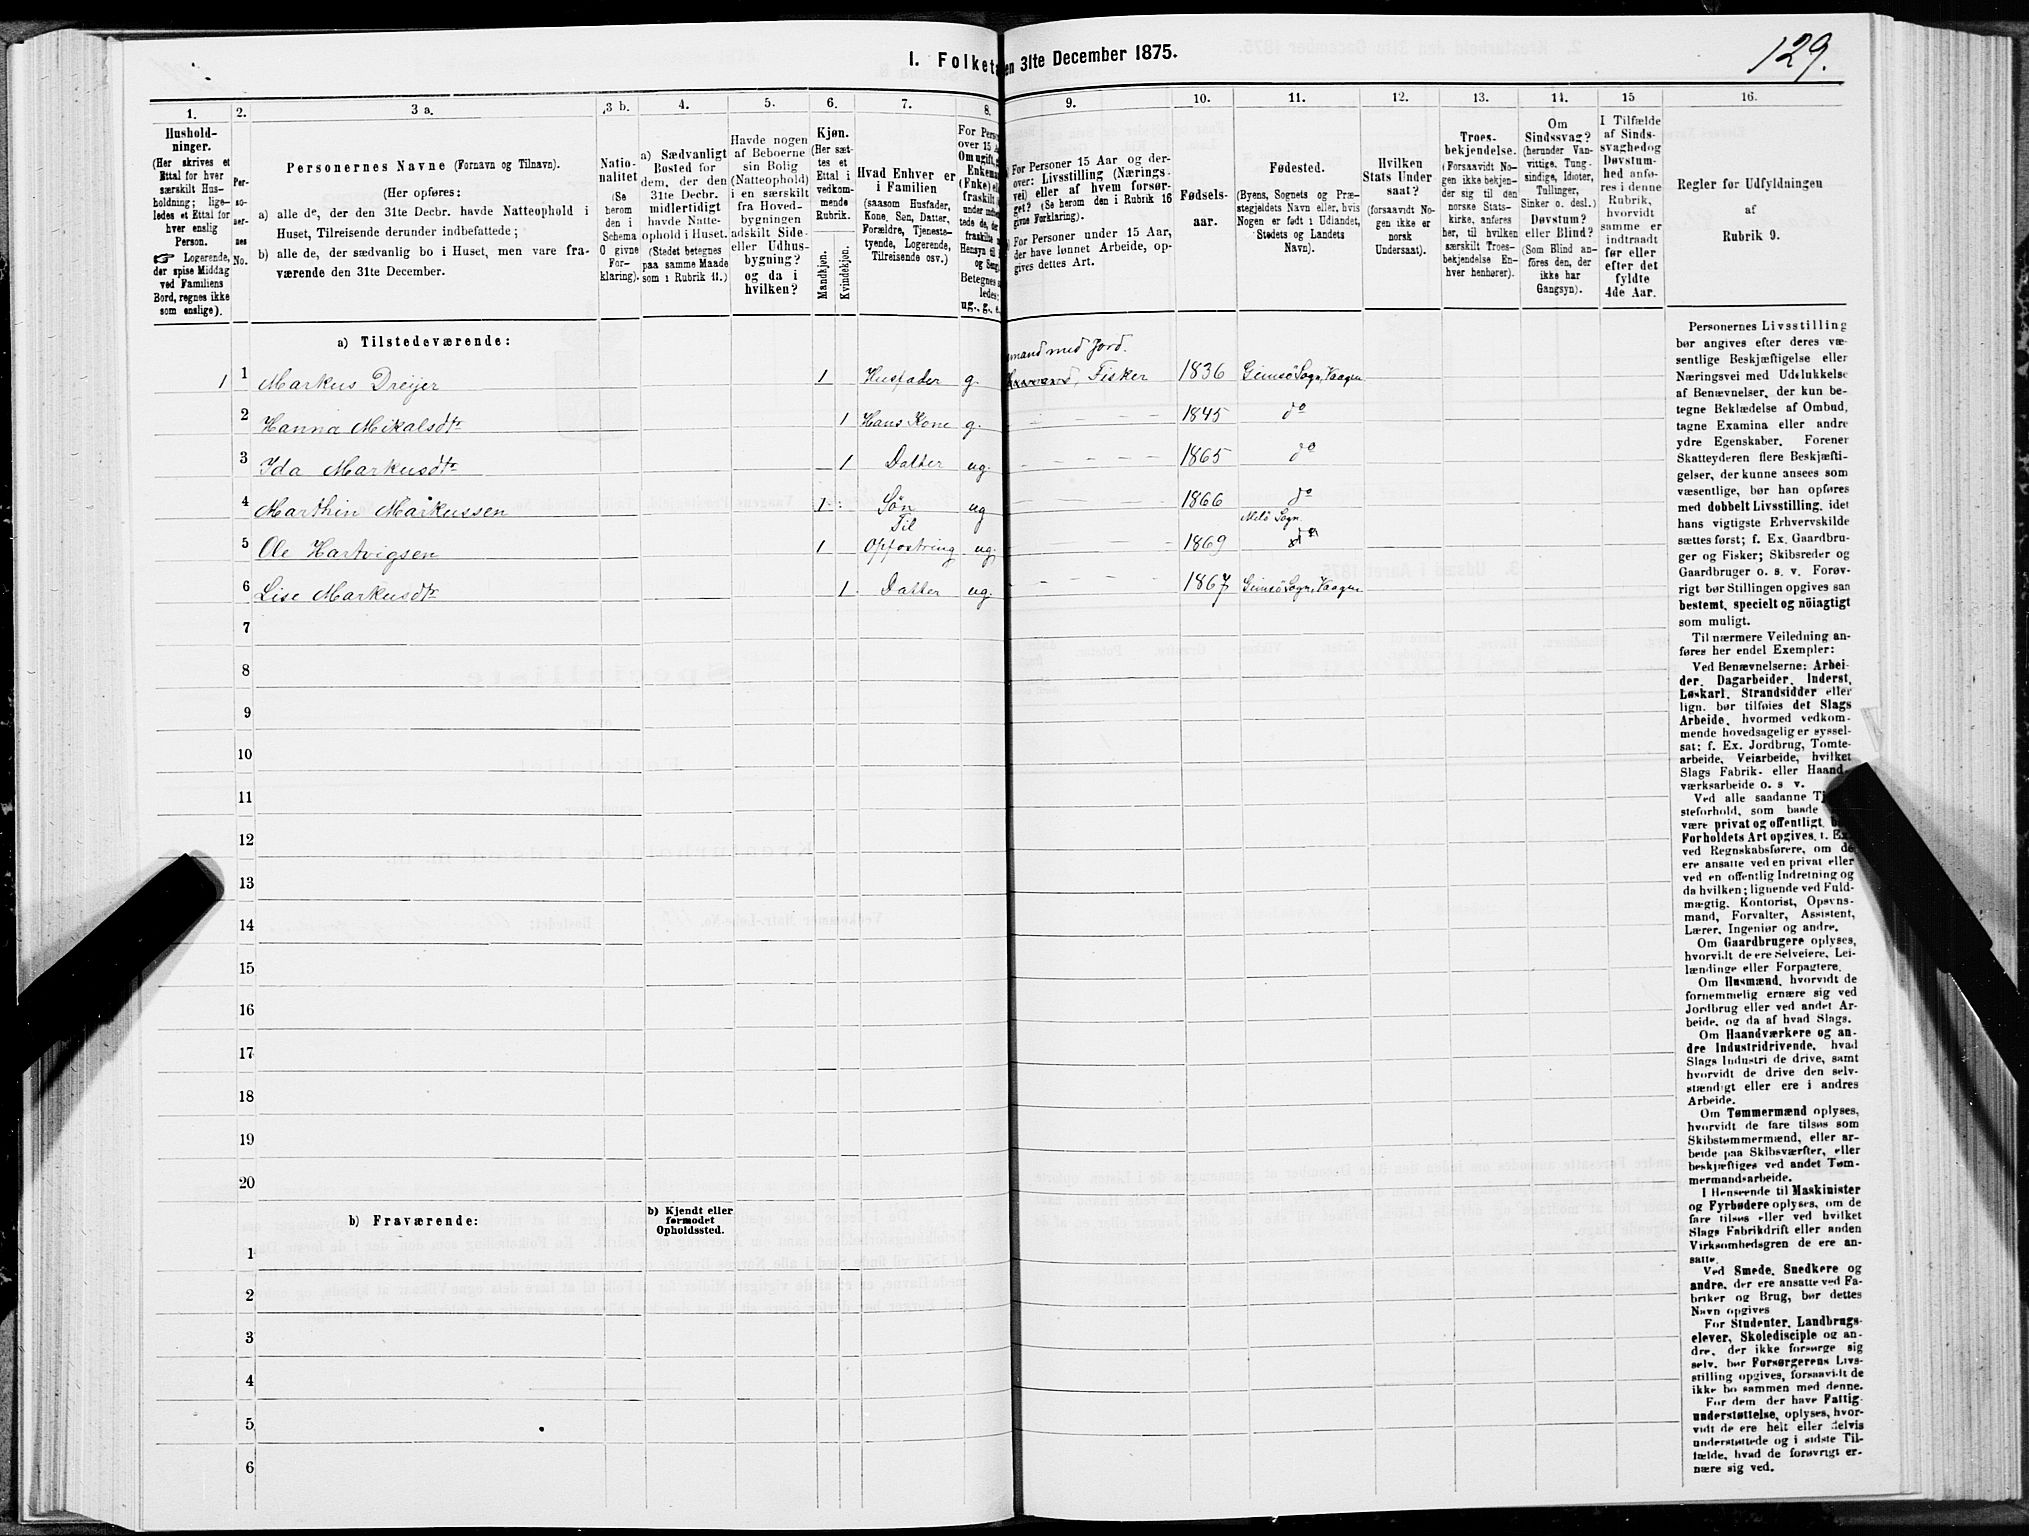 129.
I. Folketa en 31te December 1875.
1. 2. 3 a. 3 b. 4. 5. 6. 7. 8. 9. 10. 11. 12. 13. 14. 15 16.
Hushold-
ninger.
(Her skrives et
Ettal for hver
særskilt Hus-
holdning; lige-
ledes et Ettal for
hver enslig
Person.
☞ Logerende,
der spise Middag
ved Familiens
Bord, regnes ikke
som enslige).
Per-
so-
ner-
nes
No.
Personernes Navne (Fornavn og Tilnavn).
(Her opføres:
a) alle de, der den 31te Decbr. havde Natteophold i
Huset, Tilreisende derunder indbefattede;
b) alle de, der sædvanlig bo i Huset, men vare fra-
værende den 31te December.
Natio-
nalitet
(Se
herom
den i
Schema
O givne
For-
klaring).
a) Sædvanligt
Bosted for
dem, der den
31te Decbr.
midlertidigt
havde Natte-
ophold i Huset.
(Stedet betegnes
paa samme Maade
som i Rubrik 11.)
Havde nogen
af Beboerne
sin Bolig
(Natteophold)
i en særskilt
fra Hoved-
bygningen
adskilt Side-
eller Udhus-
bygning?
og da i
hvilken?
Kjøn.
(Her sæt-
tes et
Ettal i
vedkom-
mende
Rubrik.
Mandkjøn.
Kvindekjøn.
Hvad Enhver er
i Familien
(saasom Husfader,
Kone, Søn, Datter,
Forældre, Tjeneste-
tyende, Logerende,
Tilreisende osv.)
For Perso
over 15 A
Om ugift, g
Enkema
(Enke) ell
fraskilt
under indbe
tede de, fr
fraskilte
Hensyn til
og Seng
Betegnes s
ledes:
ug., g., e.
For Personer 15 Aar og der-
over: Livsstilling (Nærings-
vei) eller af hvem forsør-
get? (Se herom den i Rubrik 16
givne Forklaring).
For Personer under 15 Aar,
der have lønnet Arbeide, op-
gives dettes Art.
Fødsels-
aar.
Fødested.
(Byens, Sognets og Præ-
stegjeldets Navn eller, hvis
Nogen er født i Udlandet,
Stedets og Landets
Navn).
Hvilken
Stats Under
saat?
(forsaavidt No-
gen ikke er
norsk
Undersaat).
Troes-
bekjendelse.
(Forsaavidt No-
gen ikke bekjen-
der sig til den
norske Stats-
kirke, anføres
her, til hvilken
særskilt Troes-
bekjendelse En-
hver henhører).
Om
Sindssvag?
(herunder Van-
vittige, Tung-
sindige, Idioter,
Tullinger,
Sinker o. desl.)
Døvstum?
eller Blind?
(Som Blind an-
føres den, der
ikke har
Gangsyn).
I Tilfælde
af Sinds-
svaghed og
Døvstum-
hed anfø-
res i denne
Rubrik,
hvorvidt
samme er
indtraadt
før eller
efter det
fyldte
4de Aar.
Regler for Udfyldningen
af
Rubrik 9.
a) Tilstedeværende:
mand med Jord.
1 1 Markus Dreijer 1 Husfader g. Fisker 1836 Gimsö Sogn, Vaagen
2 Hanna Mikalsdtr 1 Hans Kone g. - - - 1845 do
3 Ida Markusdtr 1 Datter ug. - - - 1865 do
4 Marthin Markussen 1 Søn ug - - - 1866 do
Til Sogn
5 Ole Hartvigsen 1 Opfostring ug. - - - 1869 do
6 Lise Markusdtr 1 Datter ug. - - - 1867 Gimsö Sogn, Vaagen
7
8
9
10
11
12
13
14
15
16
17
18
19
20
b) Fraværende:
b) Kjendt eller
formodet
Opholdssted.
1
2
3
4
5
6
Personernes Livsstilling
bør angives efter deres væ-
sentlige Beskjæftigelse eller
Næringsvei med Udelukkelse
af Benævnelser, der kun be-
tegne Beklædelse af Ombud,
tagne Examina eller andre
ydre Egenskaber. Forener
Skatteyderen flere Beskjæfti-
gelser, der kunne ansees som
væsentlige, bør han opføres
med dobbelt Livsstilling, idet
hans vigtigste Erhvervskilde
sættes først; f. Ex. Gaardbru-
ger og Fisker; Skibsreder og
Gaardbruger o. s. v. Forøv-
rigt bør Stillingen opgives saa
bestemt, specielt og nöiagtigt
som muligt.
Til nærmere Veiledning an-
føres her endel Exempler:
Ved Benævnelserne: Arbei-
der, Dagarbeider, Inderst,
Løskarl, Strandsidder eller
lign. bør tilføies det Slags
Arbeide, hvormed vedkom-
mende hovedsagelig er syssel-
sat; f. Ex. Jordbrug, Tomte-
arbeide, Veiarbeide, hvilket
Slags Fabrik- eller Haand-
værksarbeide o. s v.
Ved alle saadanne Tj
steforhold, som baade
være privat og offentligt,
Forholdets Art opgives, f. Ex
ved Regnskabsførere, om de
ere ansatte ved en privat eller
ved en offentlig Indretning og
da hvilken; lignende ved Fuld-
mægtig, Kontorist, Opsyns-
mand, Forvalter, Assistent,
Lærer, Ingeniør og andre.
Om Gaardbrugere oplyses,
hvorvidt de ere Selveiere, Lei-
lændinge eller Forpagtere.
Om Husmænd, hvorvidt de
fornemmelig ernære sig ved
Jordbrug eller ved andet Ar-
beide, og da af hvad Slags.
Om Haandværkere og an-
dre Industridrivende, hvad
Slags Industri de drive, samt
hvorvidt de drive den selv-
stændigt eller ere i andres
Arbeide.
Om Tømmermænd oplyses,
hvorvidt de fare tilsøs som
Skibstømmermænd, eller ar-
beide paa Skibsværfter, eller
beskjæftiges ved andet Tøm-
mermandsarbeide.
I Henseende til Maskinister
og Fyrbødere oplyses, om de
fare tilsøs eller ved hvilket
Slags Fabrikdrift eller anden
Virksomhedsgren de ere an-
satte.
Ved Smede, Snedkere og
andre, der ere ansatte ved Fa-
briker og Brug, bør dettes
Navn opgives
For Studenter, Landbrugs-
elever, Skoledisciple og an-
dre, der ikke forsørge sig
selv, bør Forsørgerens Livs-
stilling opgives, forsaavidt de
ikke bo sammen med denne.
For dem, der have Fattig-
understøttelse, oplyses, hvor-
vidt de ere helt eller delvis
understøttede og i sidste Til-
fælde, hvad de forøvrigt er-
nære sig ved.